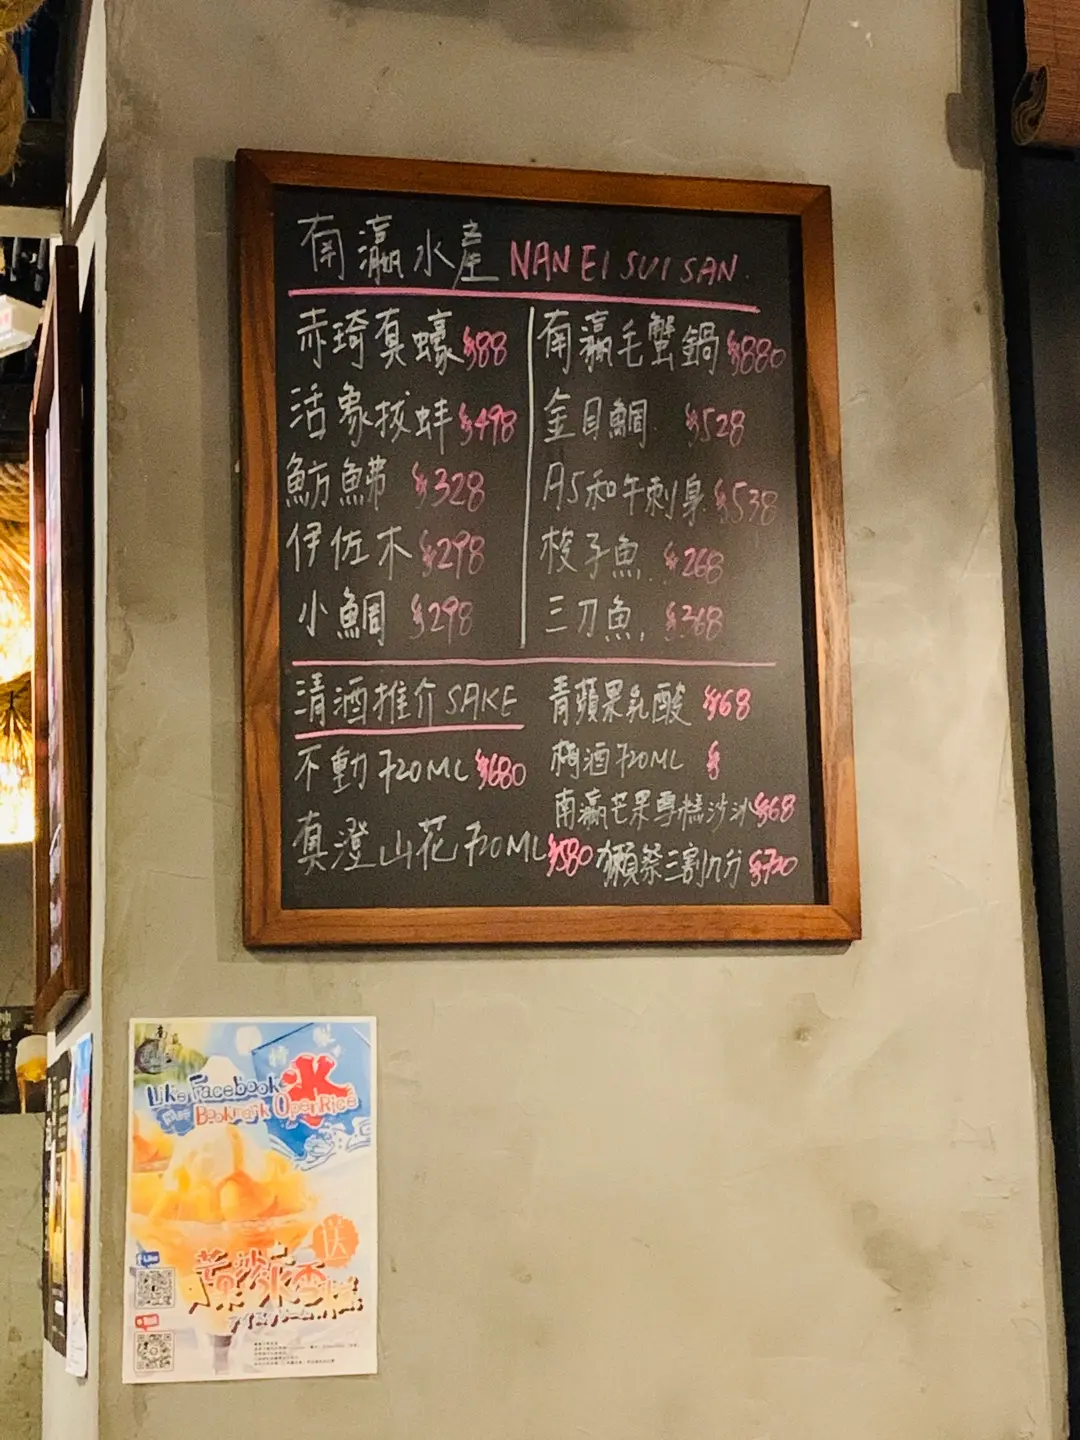 南瀛水產 NAN EI SUI SAN
赤琦真蠔 $88
活象拔蚌 $498
魴鮄 $328
伊佐木 $298
小鯛 $298
南瀛毛蟹鍋 $880
金目鯛 $528
A5和牛刺身 $538
梭子魚 $268
三刀魚 $368
清酒推介 SAKE
不動 720ML $680
真澄山花 720ML $580
青蘋果乳酸 $68
梅酒 720ML $
南瀛芒果雪糕沙冰 $68
獺祭三割九分 $720
Like Facebook
Bookmark OpenRice
氷
送